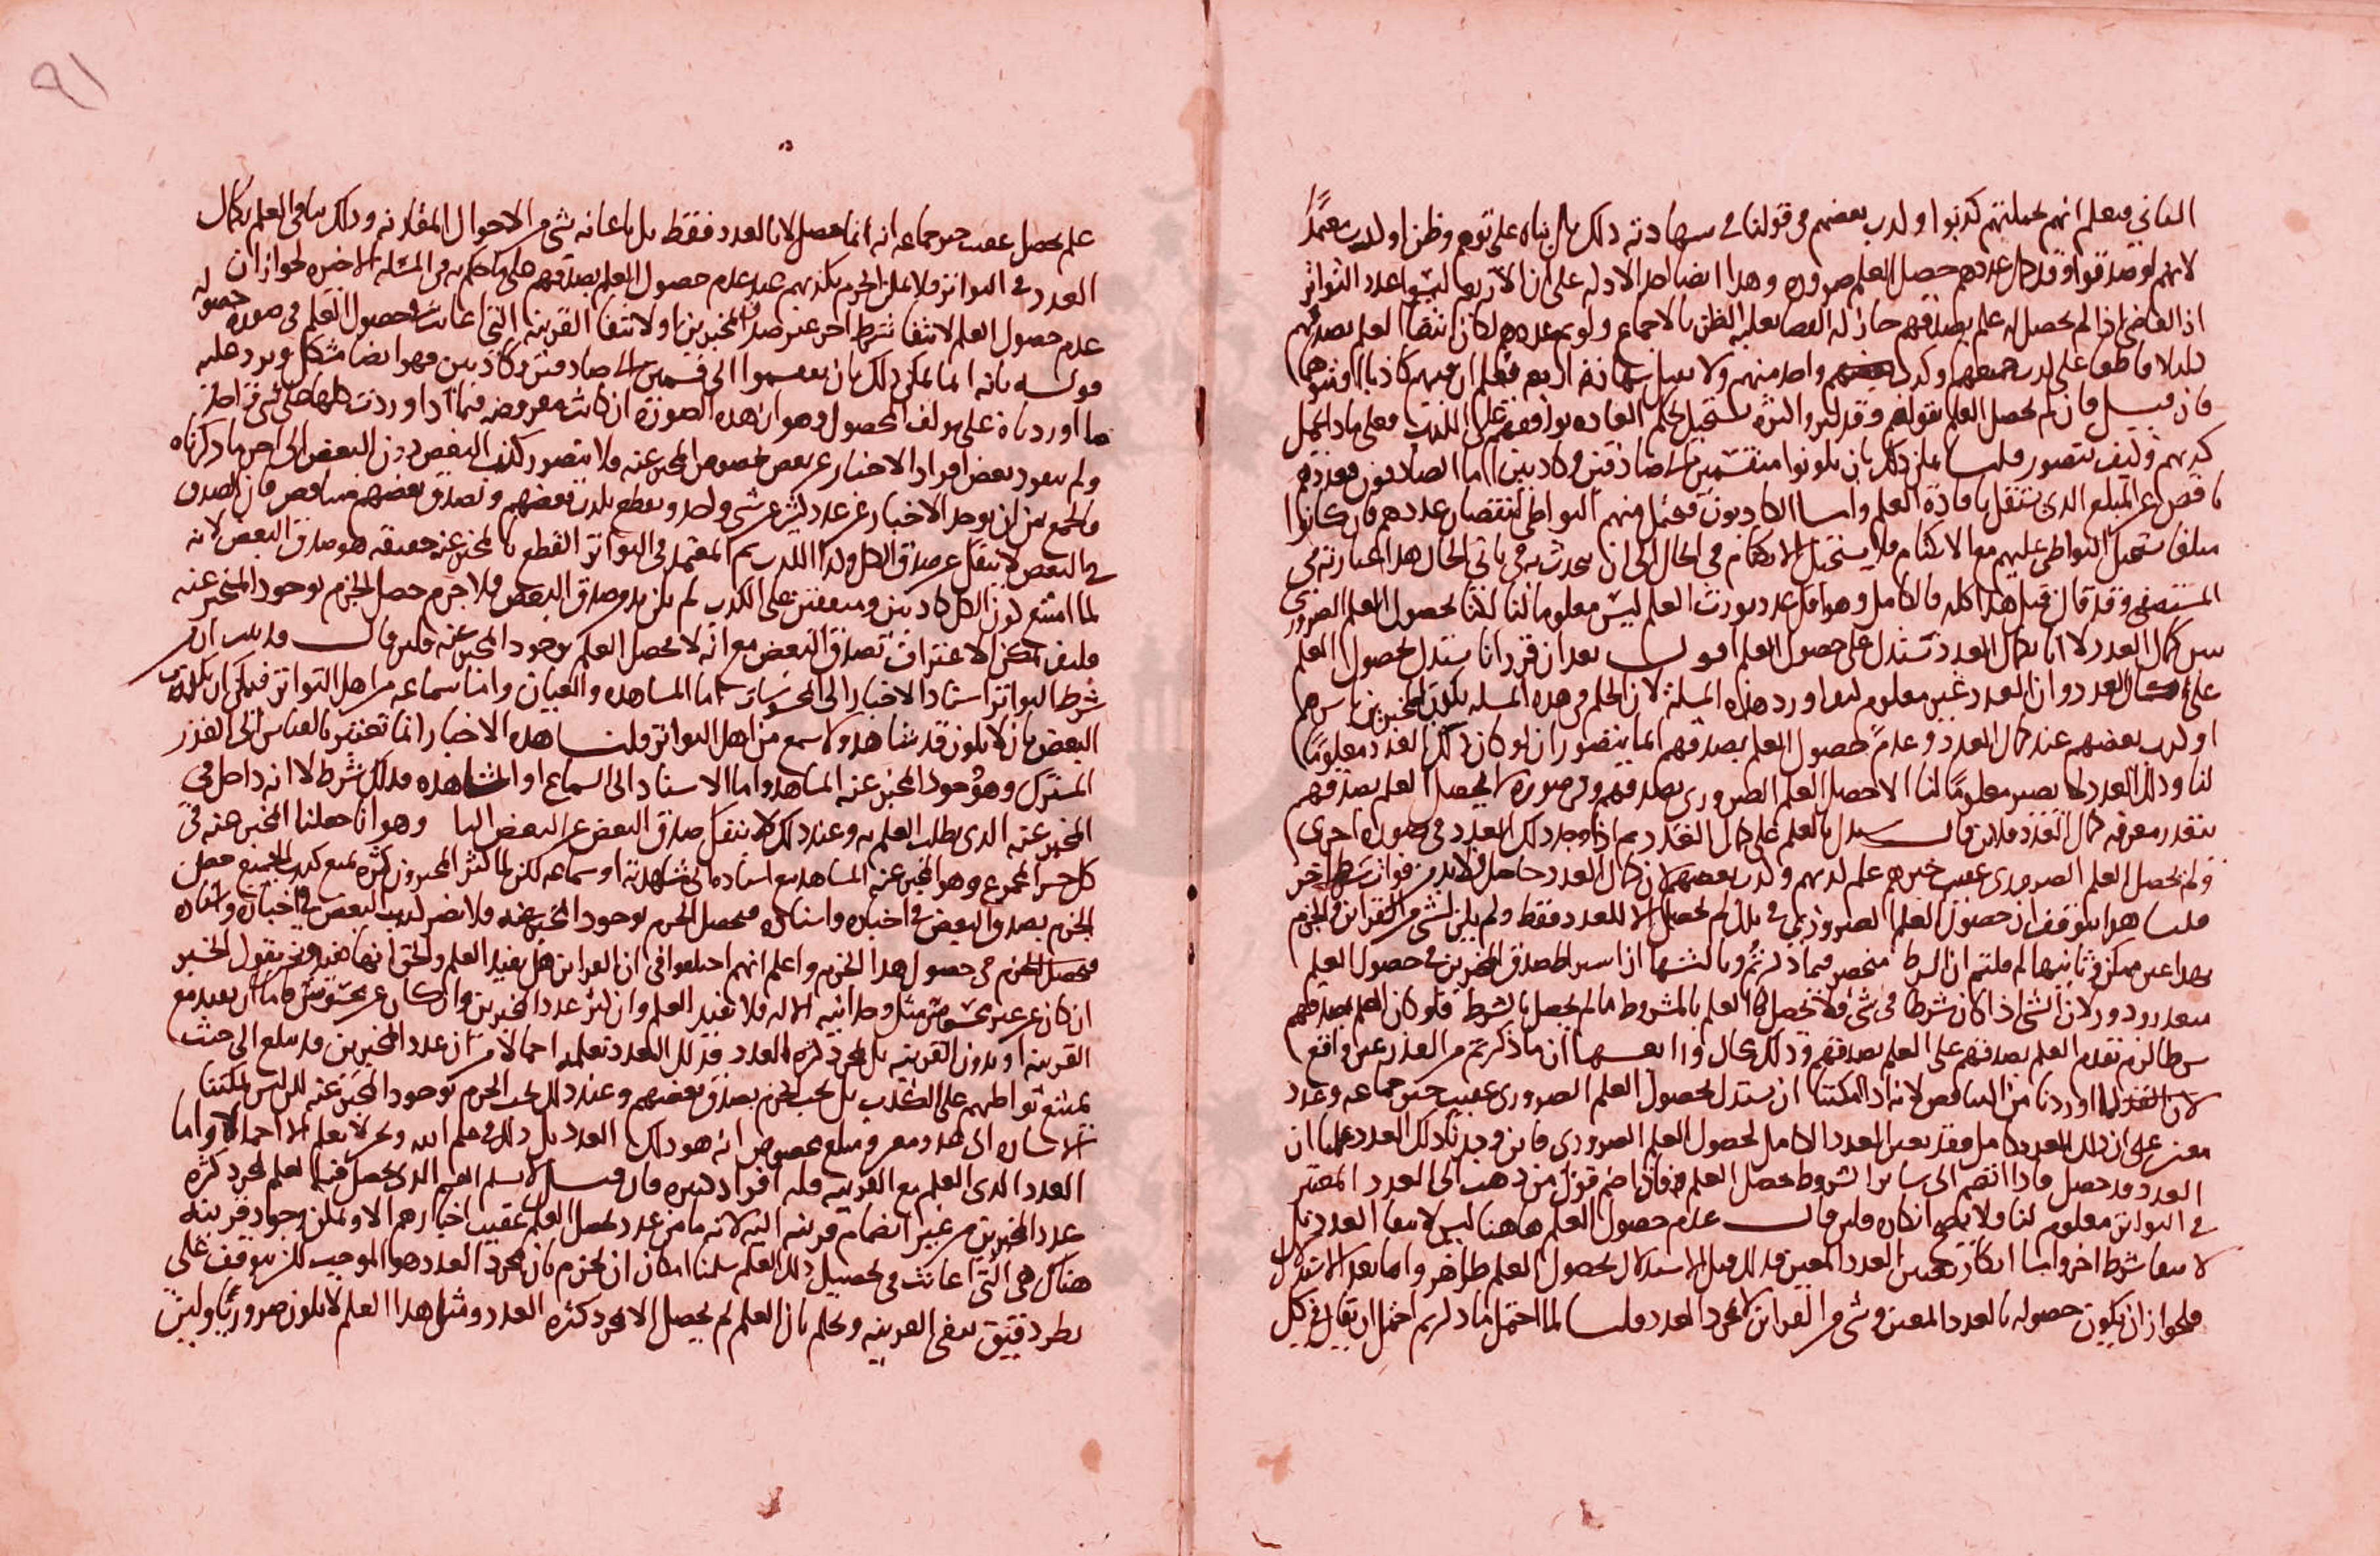 الثاني فيعلم انهم بجملتهم كذبوا او كذب بعضهم في قولنا في شهادته ذلك بل بناه على توهم وظن او كذب متعمدا
لانهم لو صدقوا وقد كمل عددهم حصل العلم ضرورة وهذا ايضا احد الادلة على ان الاربعة ليسوا عدد التواتر
اذ القاضي اذا لم يحصل له علم بصدقهم جاز له القضا بغلبة الظن بالاجماع ولو تم عددهم لكان انتفا العلم بصدقهم
دليلا قاطعا على كذب جميعهم او كذب واحد منهم ولا يقبل شهادة اربعة فيعلم ان فيهم كاذبا
فان قيل فان لم يحصل العلم بقولهم وقد كثروا كثرة يستحيل بحكم العادة توافقهم على الكذب فعلى ماذا يحمل
كذبهم وكيف يتصور قلنا يمكن ذلك بان يكونوا منقسمين الى صادقين وكاذبين اما الصادقون فعددهم
ناقص عن المبلغ الذي يستقل بافادة العلم واما الكاذبون فيحتمل منهم التواطي لنقصان عددهم فان كانوا
مبلغا يستحيل التواطي عليهم مع الانكتام فلا يستحيل الانكتام في الحال الى ان يتحدث به في ثاني الحال هذا عبارته في
المستصفى وقد قال قبل هذا كله فالكامل وهو اقل عدد يورث العلم ليس معلوما لنا لكنا بحصول العلم الضروري
نتبين كمال العدد لا انا بكمال العدد نستدل على حصول العلم اقول بعد ان قرر انا نستدل بحصول العلم
على كمال العدد وان العدد غير معلوم لنا اورد هذه المسلة لان الحكم في هذه المسلة بكون المخبرين باسرهم
او كذب بعضهم عند كمال العدد وعدم حصول العلم بصدقهم انما يتصور ان لو كان ذلك العدد معلوما
لنا وذلك العدد لا يصير معلوما لنا الا بحصول العلم الضروري بصدقهم وفي صورة لا يحصل العلم بصدقهم
يتعذر معرفة كمال العدد فلان قال نستدل بالعلم على كمال العدد ثم اذا وجد ذلك العدد في صورة اخرى
ولم يحصل العلم الضروري عقيب خبرهم علم كذبهم او كذب بعضهم لان كمال العدد حاصل فلا بد من فوات شرط اخر
قلنا هذا يتوقف ان حصول العلم الضروري في بلد لم يحصل الا للعدد فقط ولم يكن لشي من القراين في الجزم
بهذا غير ممكن وثانيها لم قلتم ان الشرط منحصر فيما ذكرتم وثالثها اذا اشترط صدق المخبرين في حصول العلم
يتعذر ودور لان الشي اذا كان شرطا في شي فلا يحصل لنا العلم بالمشروط ما لم يحصل بالشرط فلو كان العلم بصدقهم
شرطا لزم تقدم العلم بصدقهم على العلم بصدقهم وذلك محال ورابعها ان ما ذكرتم من العذر غير واقع
لما اوردنا من التناقض لانه اذا امكننا ان نستدل بحصول العلم الضروري عقيب خبر جماعة وعدد
معين على ان ذلك العدد كامل فقد تعين العدد الكامل لحصول العلم الضروري فاين وجدنا ذلك العدد علمنا ان
العدد قد حصل فاذا انضم الى ساير الشروط حصل العلم فاذا صح قول من ذهب الى العدد المعتبر
في التواتر معلوم لنا فلا يصح انكاره فلين قال عدم حصول العلم هاهنا ليس لانتفا العدد بل
لانتفا شرط اخر واما انكار تعيين العدد المعين فذلك قبل الاستدلال بحصول العلم ظاهر واما بعد الاستدلال
فلجواز ان يكون حصوله بالعدد المعين وشي من القراين لا بمجرد العدد قلنا لما احتمل ما ذكرتم احتمل ان يقال في كل
علم يحصل عقيب خبر جماعة انه انما يحصل لا بالعدد فقط بل باعانة شي من الاحوال المقارنة وذلك ينافي العلم بكمال
العدد في التواتر فلا يمكن الجزم بكذبهم عند عدم حصول العلم بصدقهم على ما حكم به في المسلة الاخيرة لجواز ان
عدم حصول العلم لانتفا شرط اخر غير صدق المخبرين او لانتفا القرينة التي عانت في حصول العلم في صورة حصوله
قوله بانه انما يمكن ذلك بان ينقسموا الى قسمين الى صادقين وكاذبين فهو ايضا مشكل ويرد عليه
ما اوردناه على مولف المحصول وهو ان هذه الصورة ان كانت مفروضة فيما اذا وردت كلها على شي واحد
ولم ينفرد بعض افراد الاخبار عن بعض بخصوص المخبر عنه فلا يتصور كذب البعض دون البعض الى اخر ما ذكرناه
فالجمع بين ان يوجد الاخبار عن عدد كثير عن شي واحد ونقطع بكذب بعضهم وتصدق بعضهم متناقض فان الصدق
في البعض لا ينفك عن صدق الكل وكذا الكذب ثم المعتمد في التواتر القطع بالمخبر عنه حقيقة هو صدق البعض لانه
لما امتنع كون الكل كاذبين ومتفقين على الكذب لم يكن بد من صدق البعض فلا جرم حصل الجزم بوجود المخبر عنه
فكيف يمكن الاعتراف بصدق البعض مع انه لا يحصل العلم بوجود المخبر عنه فلين قال قد بينا ان من
شرط التواتر استناد الاخبار الى المحسوسات اما المشاهدة والعيان واما سماعه من اهل التواتر فيمكن ان يكذب
البعض بان لا يكون قد شاهد ولا سمع من اهل التواتر قلنا هذه الاخبار انما تعتبر بالقياس الى القدر
المشترك وهو وجود المخبر عنه المشاهد واما الاسناد الى السماع او المشاهدة فذلك شرط لا انه داخل في
المخبر عنه الذي يطلب العلم به وعند ذلك لا ينفك صدق البعض عن البعض وهو انا جعلنا المخبر عنه في
كل خبر المجموع وهو المخبر عنه المشاهد مع اسناده الى مشاهدته او سماعه لكن لما كثر المخبرون كثرة تمنع كذب الجميع حصل
الجزم بصدق البعض في اخباره واسناده فيحصل الجزم بوجود المخبر عنه فلا يضر كذب البعض في اخباره واسناده
فيحصل الجزم في حصول هذا الجزم واعلم انهم اختلفوا في ان القراين هل تفيد العلم والحق انها تفيد ونحن نقول الخبر
ان كان عن غير محسوس مثل وحدانية الاله فلا تفيد العلم وان كثر عدد المخبرين وان كان عن محسوس فاما ان يفيد مع
القرينة او بدون القرينة بل بمجرد كثرة العدد فذلك العدد نعلمه اجمالا من ان عدد المخبرين قد يبلغ الى حيث
يمتنع تواطيهم على الكذب بل يجب الجزم بصدق بعضهم وعند ذلك يجب الجزم بوجود المخبر عنه لكن ليس يمكننا
الاشارة الى عدد معين ومبلغ مخصوص انه هو ذلك العدد بل ذلك في علم الله ونحن لا نعلم الا اجمالا واما
العدد الذي العلم مع القرينة فله افراد كثيرة فان قيل لا نسلم القسم الذي يحصل فيه العلم بمجرد كثرة
عدد المخبرين من غير انضمام قرينة اليه لانه ما من عدد يحصل العلم عقيب اخبارهم الا ويمكن وجود قرينة
هناك هي التي عانت في تحصيل ذلك العلم سلمنا امكان ان نجزم بان مجرد العدد هو الموجب لكن يتوقف على
نظر دقيق ينفي القرينة ويحكم بان العلم لم يحصل الا بمجرد كثرة العدد ومثل هذا العلم لا يكون ضروريا وليس
٩١